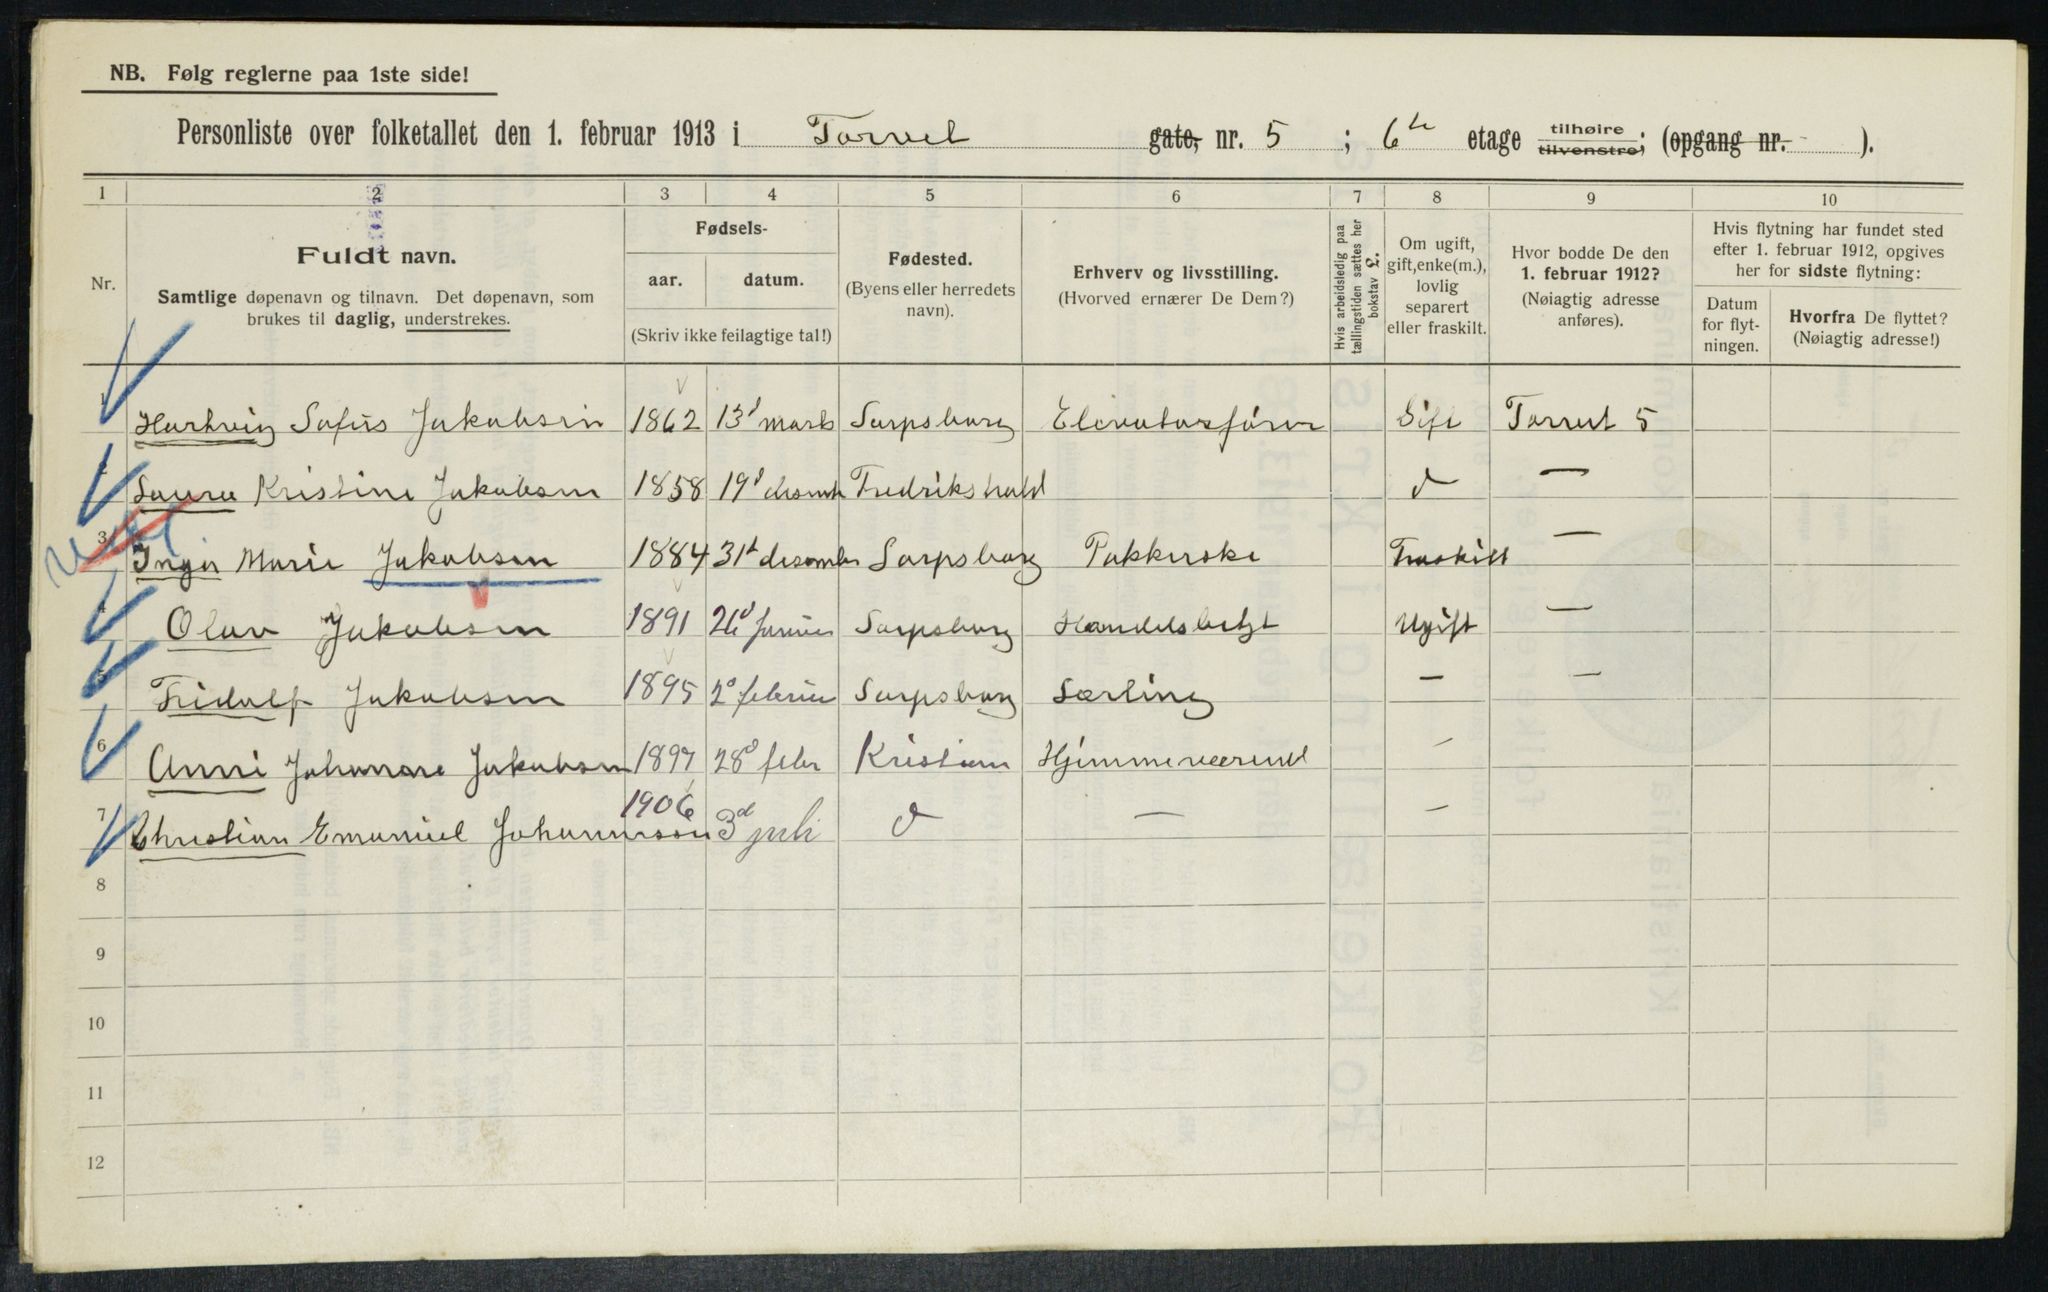 NB. Følg reglerne paa 1ste side!
Personliste over folketallet den 1. februar 1913 i Torvet gate, nr. 5 ; 6te etage tilhøire tilvenstre; (opgang nr. - ).
1 2 3 4 5 6 7 8 9 10
Nr.
Fuldt navn.
Samtlige døpenavn og tilnavn. Det døpenavn, som
brukes til daglig, understrekes.
Fødsels-
aar. datum.
(Skriv ikke feilagtige tal!)
Fødested.
(Byens eller herredets
navn).
Erhverv og livsstilling.
(Hvorved ernærer De Dem?)
Hvis arbeidsledig paa
tællingstiden sættes her
bokstav L.
Om ugift,
gift, enke(m.),
lovlig
separert
eller fraskilt.
Hvor bodde De den
1. februar 1912?
(Nøiagtig adresse
anføres).
Hvis flytning har fundet sted
efter 1. februar 1912, opgives
her for sidste flytning:
Datum
for flyt-
ningen.
Hvorfra De flyttet?
(Nøiagtig adresse!)
1 Hartvig Sofus Jakobsen 1862 13d mars Sarpsborg Elevatorfører Gift Torvet 5
2 Laura Kristine Jakobsen 1858 19d desmb Fredrikshald d —
3 Inga Marie Jakobsen 1884 31d desember Sarpsborg Pakkerske Fraskilt —
4 Olav Jakobsen 1891 26d Sarpsborg Handelsbetjt Ugift —
5 Fridolf Jakobsen 1895 2d Sarpsborg Lærling — —
6 Anni Johanne Jakobsen 1897 28d febr Kristiania Hjemmeværende —
7 Christian Emanuel Johannessen 1906 3d juli d — —
8
9
10
11
12